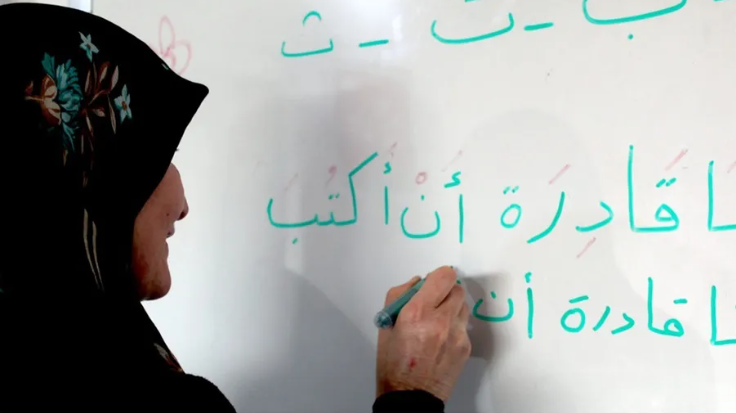 ب - ت - ث
ـا قَادِرَة أَنْ أَكْتُبَ
ـا قادرة أن